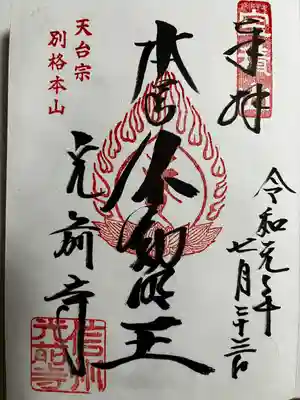 奉拝
令和元年
七月二十三日
本尊不動明王
光前寺
天台宗
別格本山
信州
光前寺